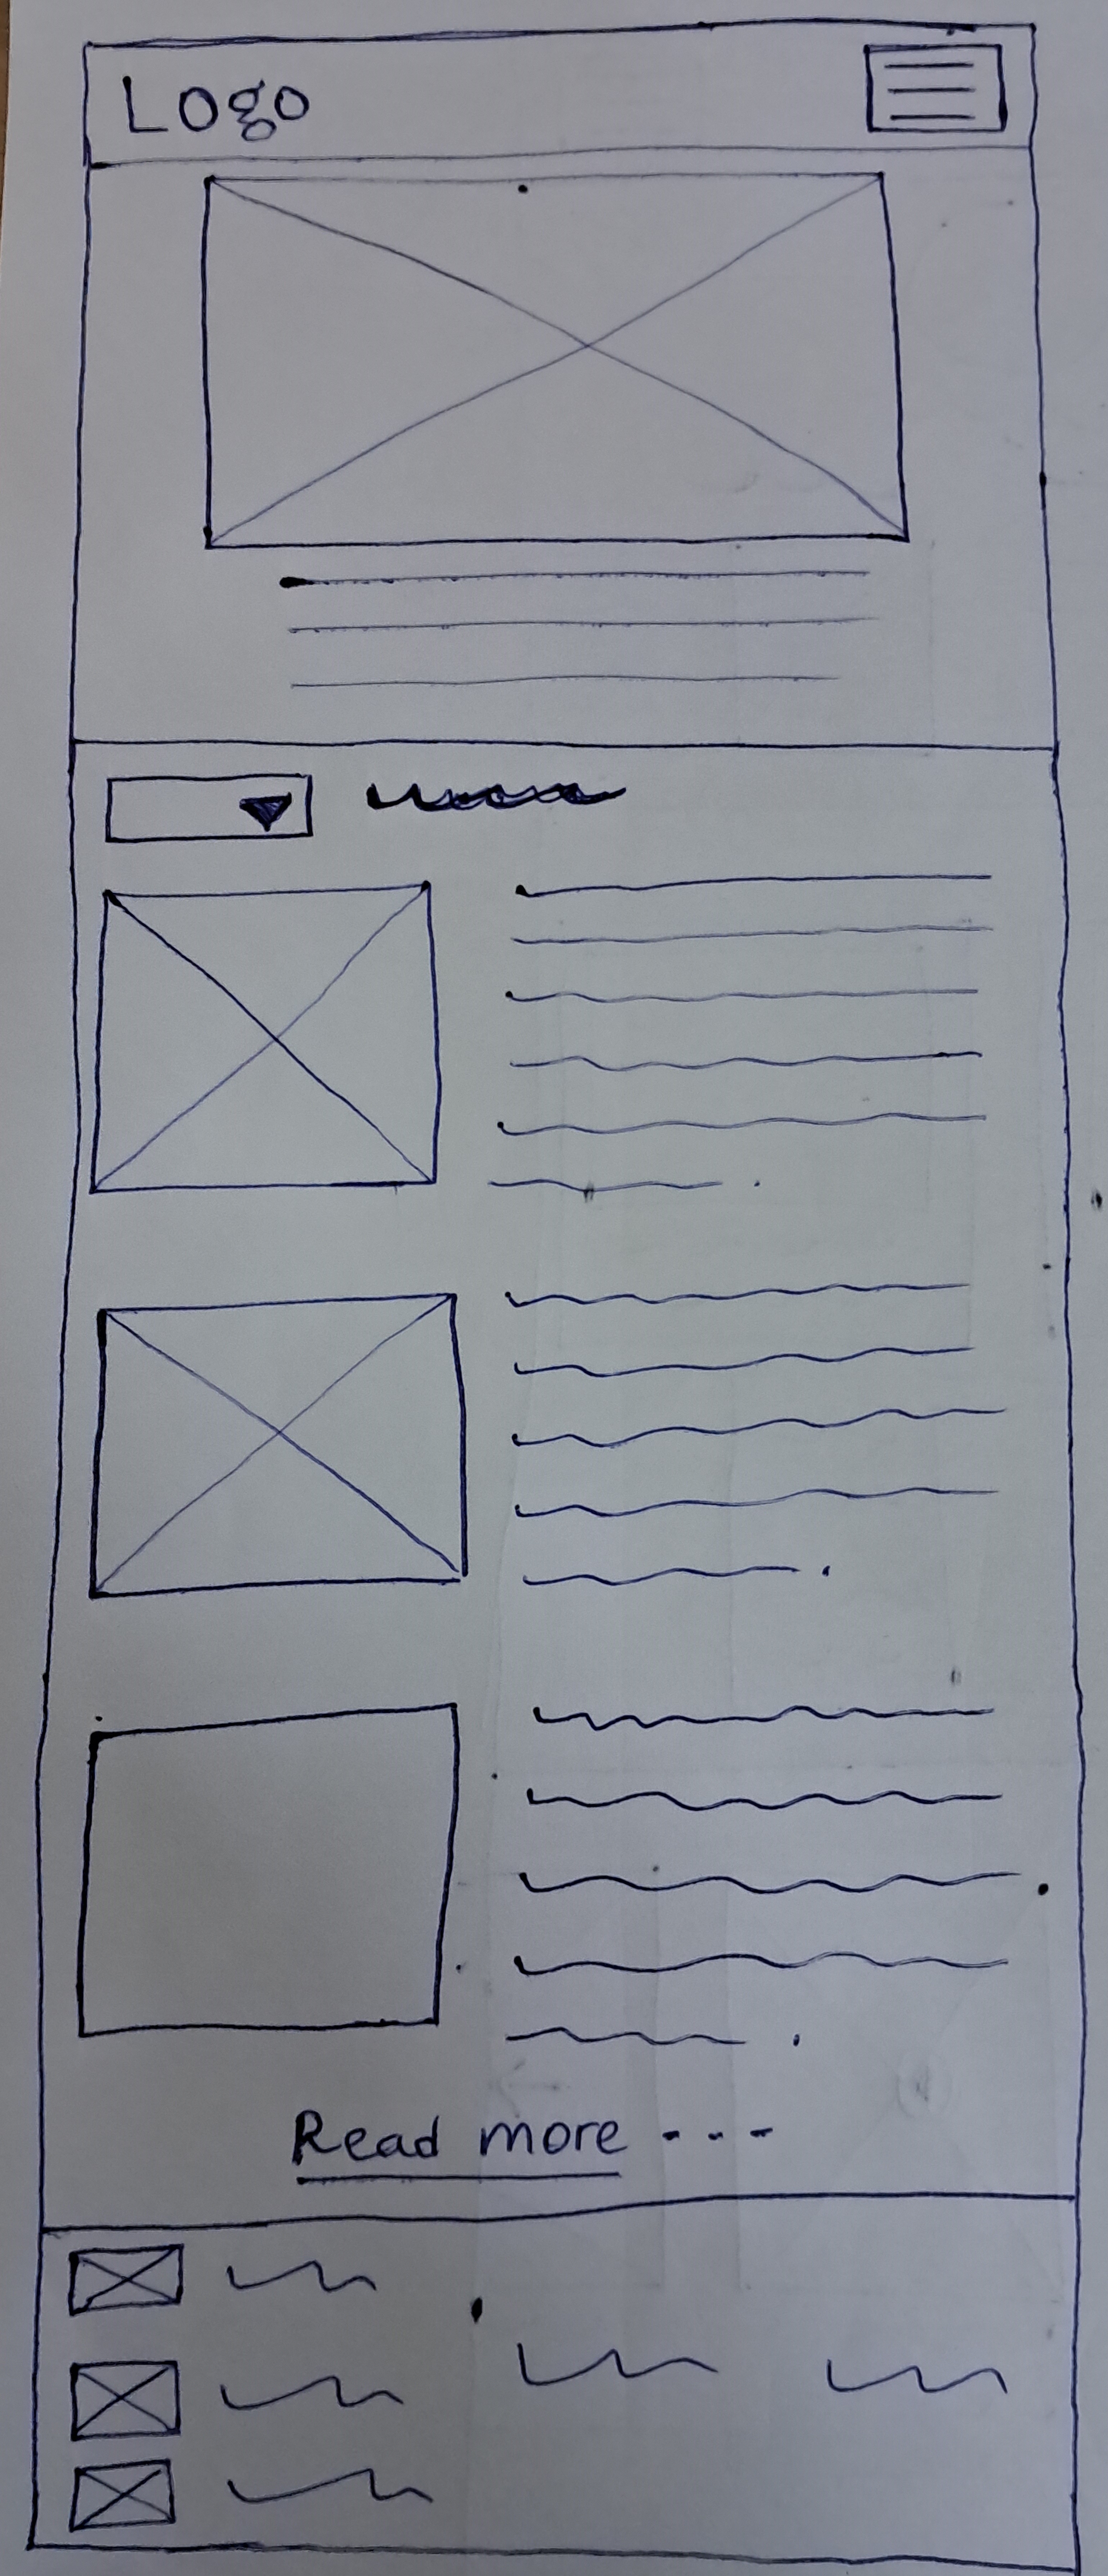 Logo
Read more ---